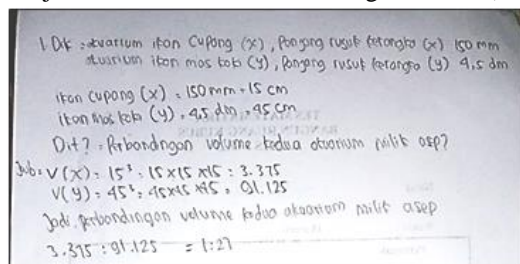 1. Dik : akuarium ikan Cupang (x), Panjang rusuk kerangka (x) 150 mm
akuarium ikan mas koki (y), Panjang rusuk kerangka (y) 4,5 dm
ikan cupang (x) = 150 mm = 15 cm
ikan mas koki (y) = 4,5 dm = 45 cm
Dit? : Perbandingan volume kedua akuarium milik asep?
Jwb = V(x) = 15³ = 15 x 15 x 15 = 3.375
V(y) = 45³ = 45x45 x45 = 91.125
Jadi, perbandingan volume kedua akuarium milik asep
3.375 : 91.125 = 1:27